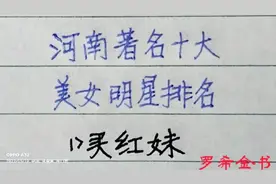 河南著名十大
美女明星排名
罗希金·书